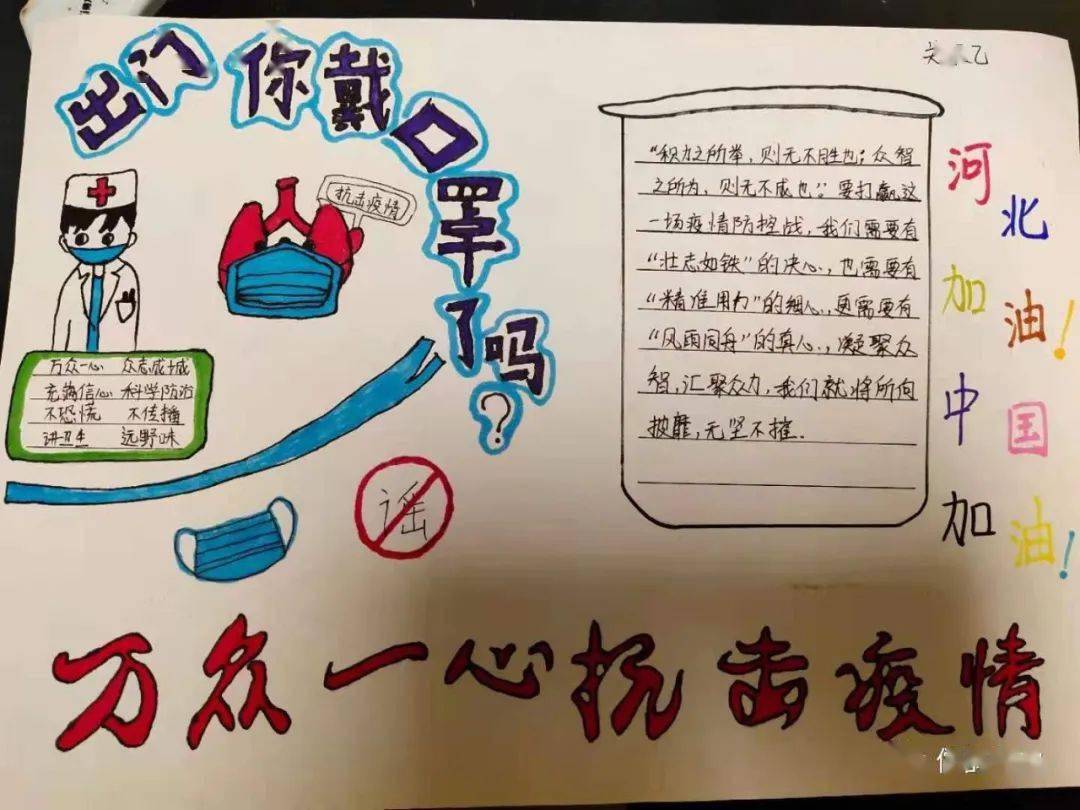 出门你戴口罩了吗?
抗击疫情
万众一心 众志成城
充满信心 科学防治
不恐慌 不传播
讲卫生 远野味
谣
"积力之所举，则无不胜也；众智
之所为，则无不成也；要打赢这
一场疫情防控战，我们需要有
"壮志如铁"的决心，也需要有
"精准用力"的细心，更需要有
"风雨同舟"的真心，凝聚众
智，汇聚众力，我们就将所向
披靡，无坚不摧.
河北
加油!
中国
加油!
万众一心抗击疫情